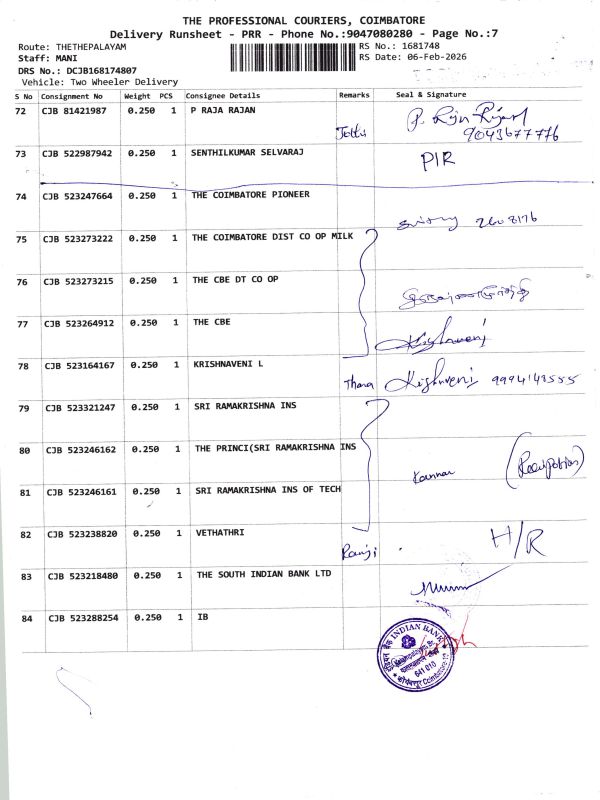 THE PROFESSIONAL COURIERS, COIMBATORE
Delivery Runsheet - PRR - Phone No.:9047080280 - Page No.:7
Route: THETHEPALAYAM RS No.: 1681748
Staff: MANI RS Date: 06-Feb-2026
DRS No.: DCJB168174807
Vehicle: Two Wheeler Delivery
S No Consignment No Weight PCS Consignee Details Remarks Seal & Signature
72 CJB 81421987 0.250 1 P RAJA RAJAN
9043677776
73 CJB 522987942 0.250 1 SENTHILKUMAR SELVARAJ PIR
74 CJB 523247664 0.250 1 THE COIMBATORE PIONEER
75 CJB 523273222 0.250 1 THE COIMBATORE DIST CO OP MILK
76 CJB 523273215 0.250 1 THE CBE DT CO OP
77 CJB 523264912 0.250 1 THE CBE
78 CJB 523164167 0.250 1 KRISHNAVENI L
79 CJB 523321247 0.250 1 SRI RAMAKRISHNA INS
80 CJB 523246162 0.250 1 THE PRINCI(SRI RAMAKRISHNA INS
Kannan
81 CJB 523246161 0.250 1 SRI RAMAKRISHNA INS OF TECH
82 CJB 523238820 0.250 1 VETHATHRI H/R
Ranji
83 CJB 523218480 0.250 1 THE SOUTH INDIAN BANK LTD
84 CJB 523288254 0.250 1 IB
INDIAN BANK
641 010